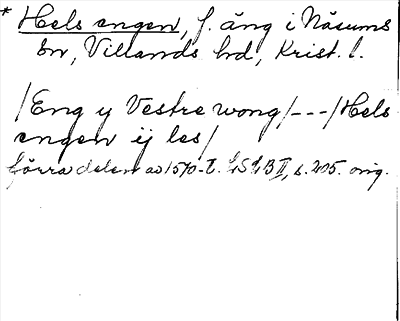 * Hels engen, f. äng i Näsums
sn, Villands hd, Krist. l.
/Eng y Vestre wong/---/Hels
engen ij les/
förra delen av 1570-t. LSLB II, s. 205. orig.